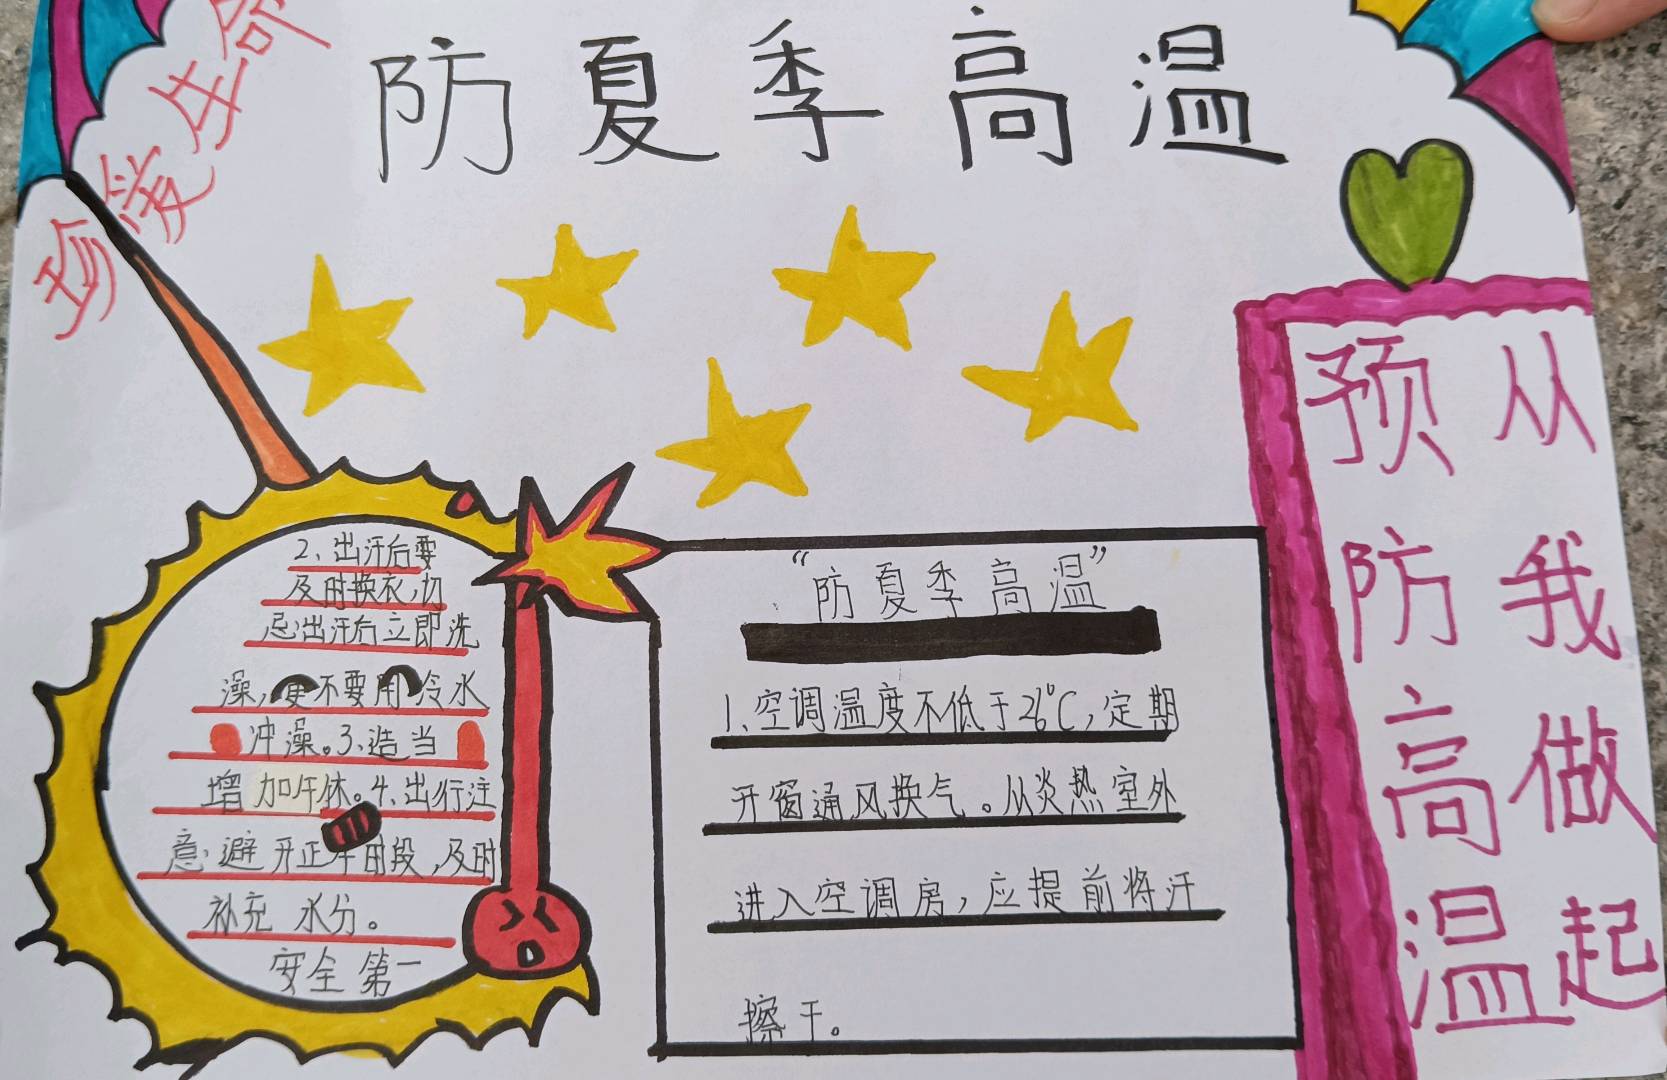 珍爱生命
防夏季高温
2、出汗后要
及时换衣,切
忌出汗后立即洗
澡,更不要用冷水
冲澡。3、适当
增加午休。4、出行注
意避开正午时段,及时
补充水分。
安全第一
“防夏季高温”
1、空调温度不低于26°C,定期
开窗通风换气。从炎热室外
进入空调房,应提前将汗
擦干。
从我做起
预防高温